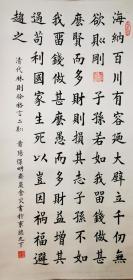 海納百川有容廼大壁立千仞無
欲則剛 子孫若如我留錢做甚
麼賢而多財則損其志子孫不如
我留錢做甚麼愚而多財益增其
過苟利國家生死以豈因禍福避
趨之
清代林則徐格言三則